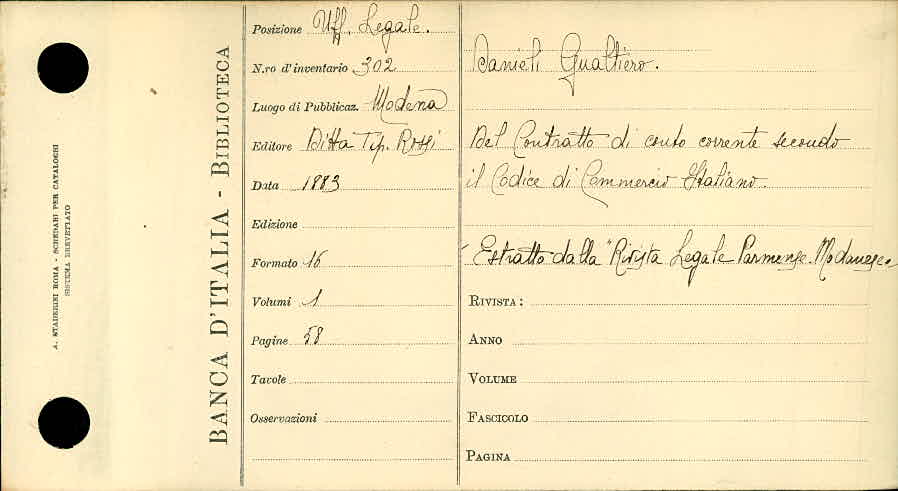 A. STADERINI ROMA - SCHEDARI PER CATALOGHI
SISTEMA BREVETTATO
BANCA D'ITALIA - BIBLIOTECA
Posizione Uff. Legale.
N.ro d'inventario 302
Luogo di Pubblicaz. Modena
Editore Ditta Tip. Rossi
Data 1883
Edizione
Formato 16
Volumi 1
Pagine 58
Tavole
Osservazioni
Danieli Gualtiero.
Del Contratto di conto corrente secondo
il Codice di Commercio Italiano.
Estratto dalla "Rivista Legale Parmense-Modanese"
RIVISTA:
ANNO
VOLUME
FASCICOLO
PAGINA